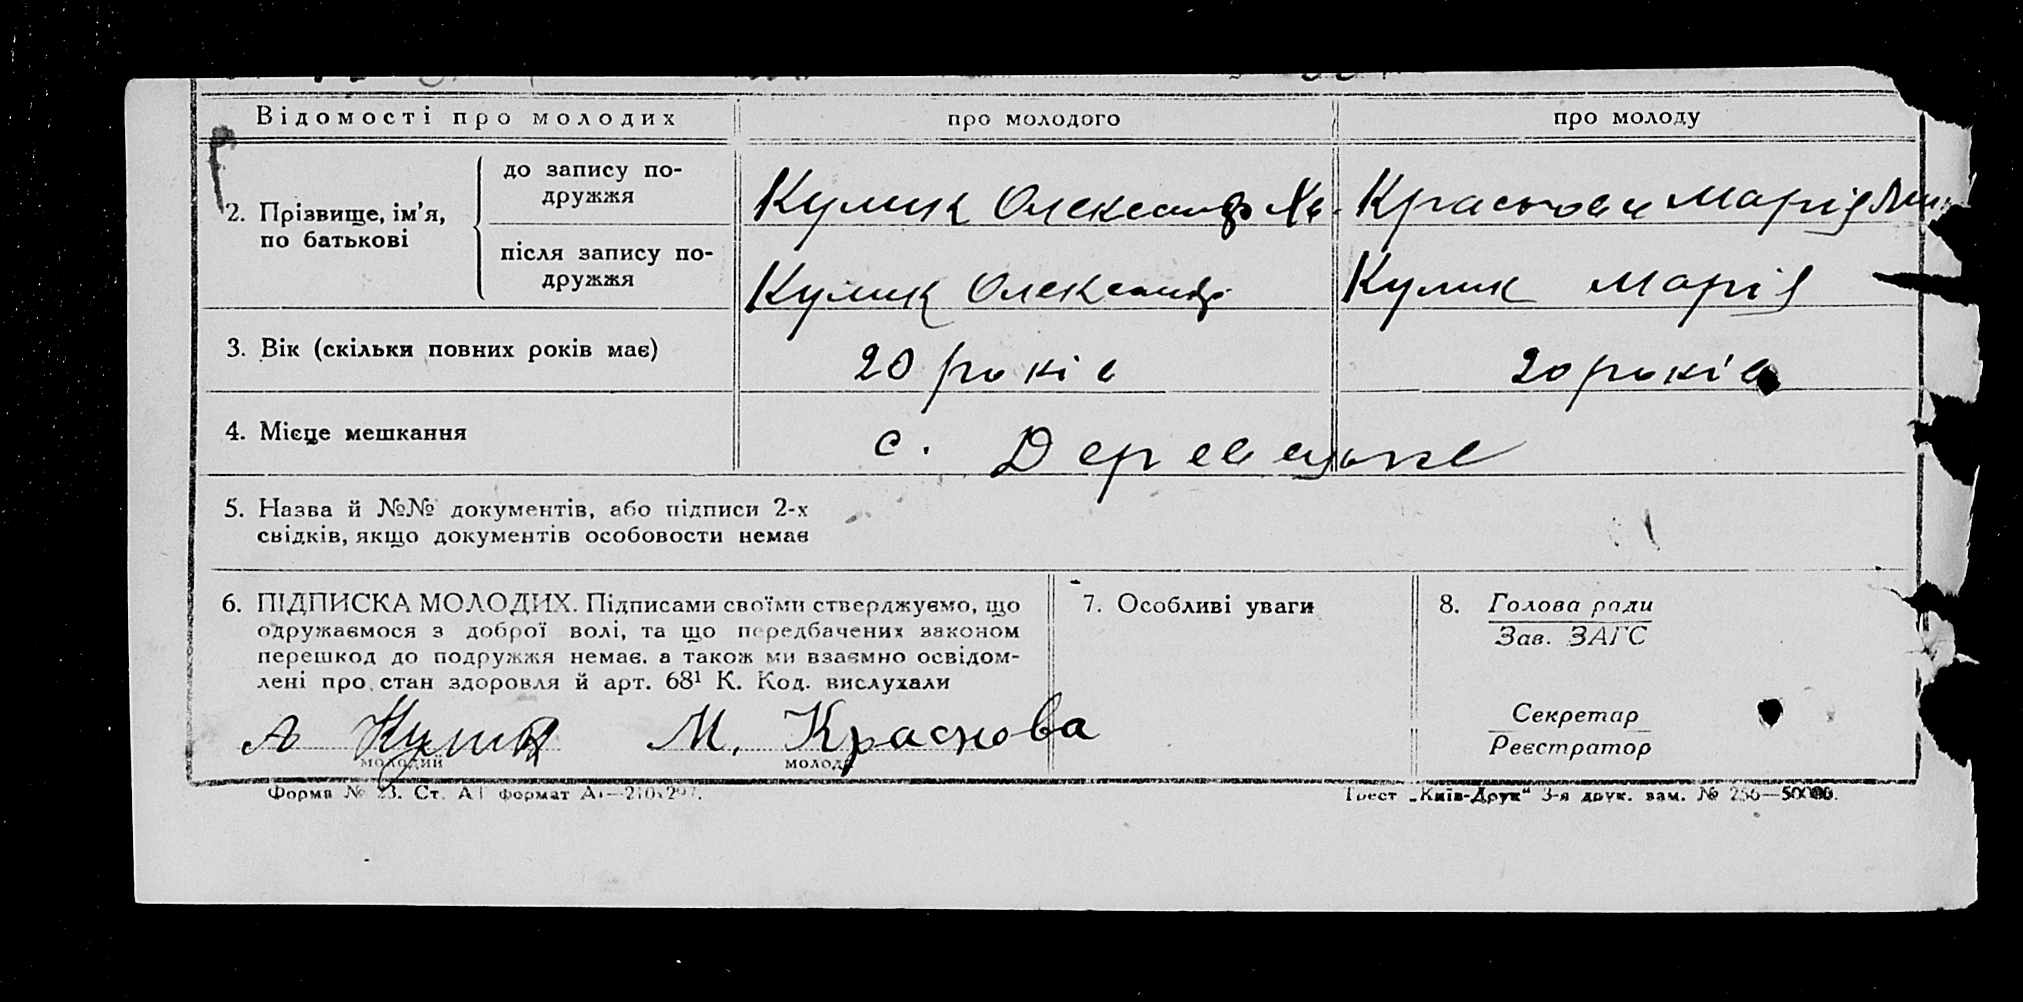 Відомості про молодих про молодого про молоду
2. Прізвище, ім'я, по батькові
до запису по-
дружжя
Кулик Олександр Ха. Краснова Марія
після запису по-
дружжя
Кулик Олександр Кулик Марія
3. Вік (скільки повних років має) 20 років 20 років
4. Місце мешкання с.
5. Назва й №№ документів, або підписи 2-х
свідків, якщо документів особовости немає
6. ПІДПИСКА МОЛОДИХ. Підписами своїми стверджуємо, що
одружаємося з доброї волі, та що передбачених законом
перешкод до подружжя немає. а також ми взаємно освідом-
лені про стан здоровля й арт. 68¹ К. Код. вислухали
А Кулик М. Краснова
молодий молода
7. Особливі уваги
8. Голова ради
Зав. ЗАГС
Секретар
Реєстратор
Форма № 23. Ст. А1 формат А4—210х297.
Трест „Київ-Друк" 3-я друк. зам. № 256—50000.